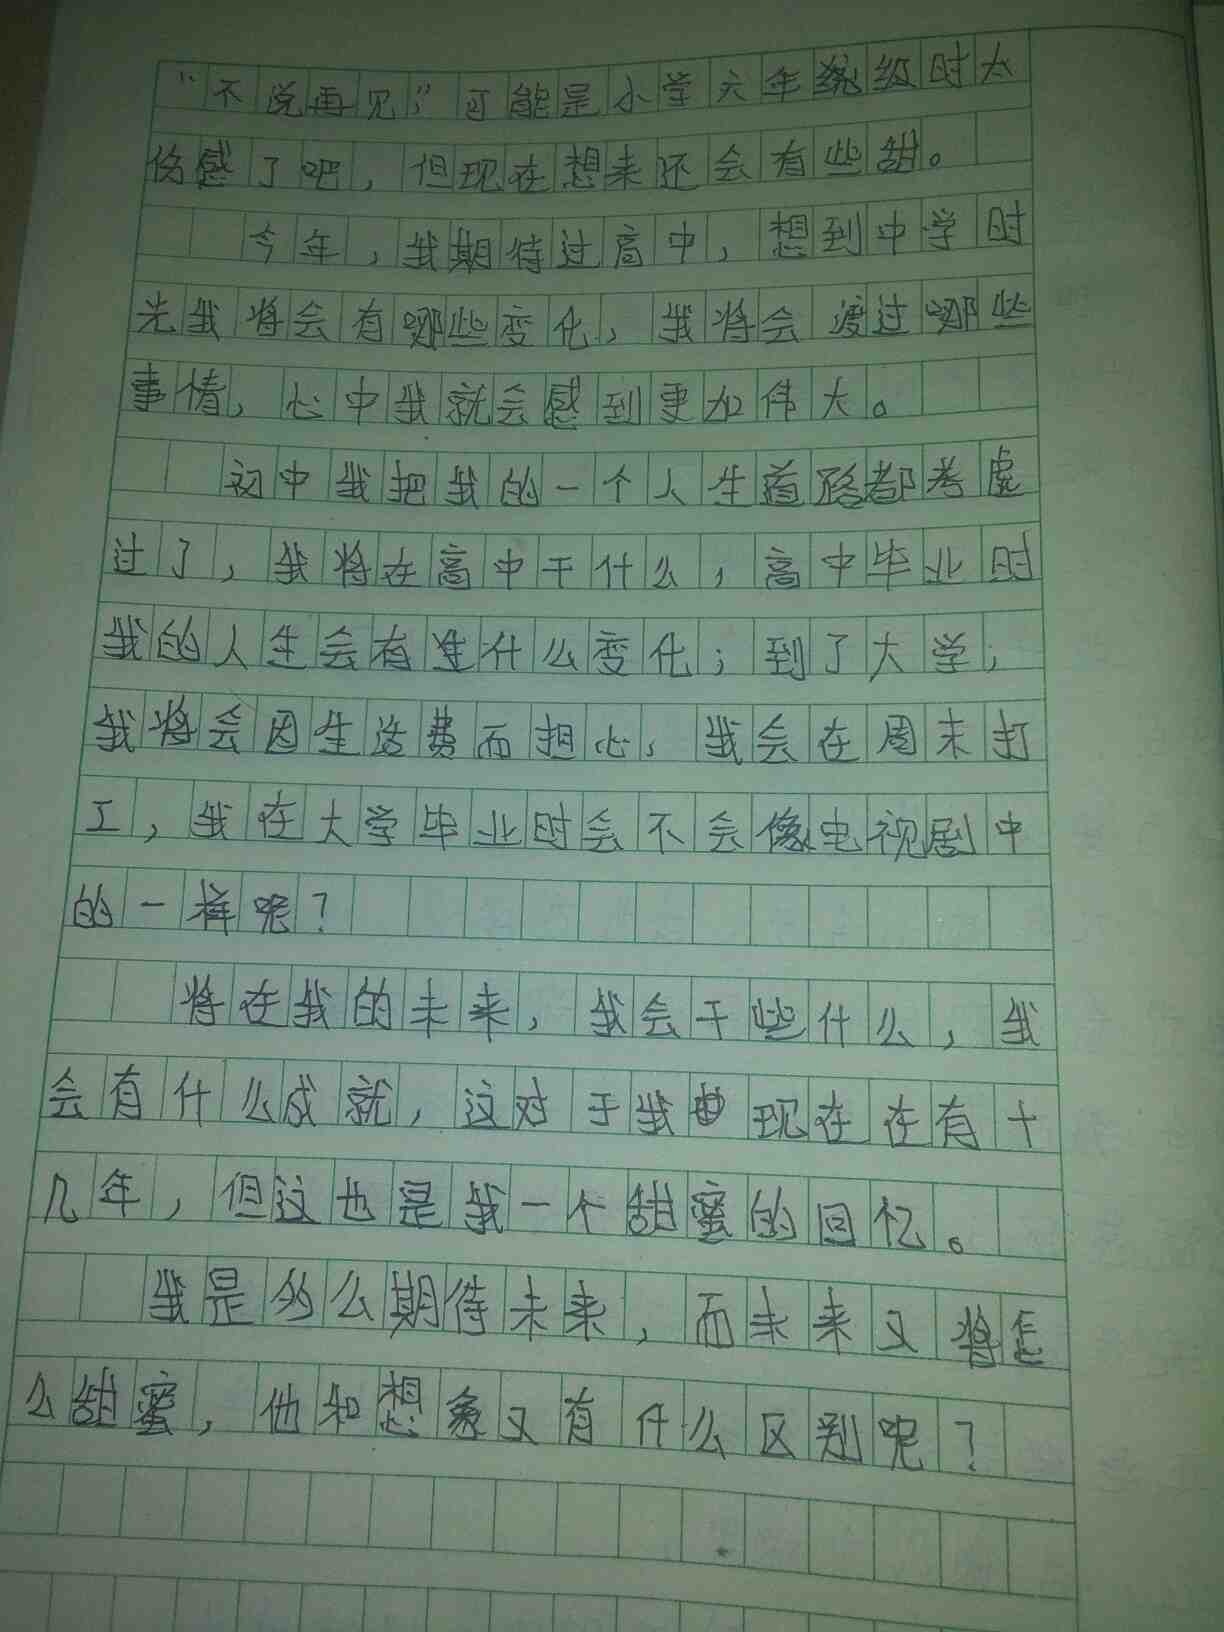 “不说再见”可能是小学六年级时太
伤感了吧，但现在想来还会有些甜。
今年，我期待过高中，想到中学时
光我将会有哪些变化，我将会渡过哪些
事情，心中我就会感到更加伟大。
初中我把我的一个人生道路都考虑
过了，我将在高中干什么，高中毕业时
我的人生会有什么变化；到了大学，
我将会因生活费而担心，我会在周末打
工，我在大学毕业时会不会像电视剧中
的一样呢？
将在我的未来，我会干些什么，我
会有什么成就，这对于我现在在有十
几年，但这也是我一个甜蜜的回忆。
我是多么期待未来，而未来又将怎
么甜蜜，他和想象又有什么区别呢？